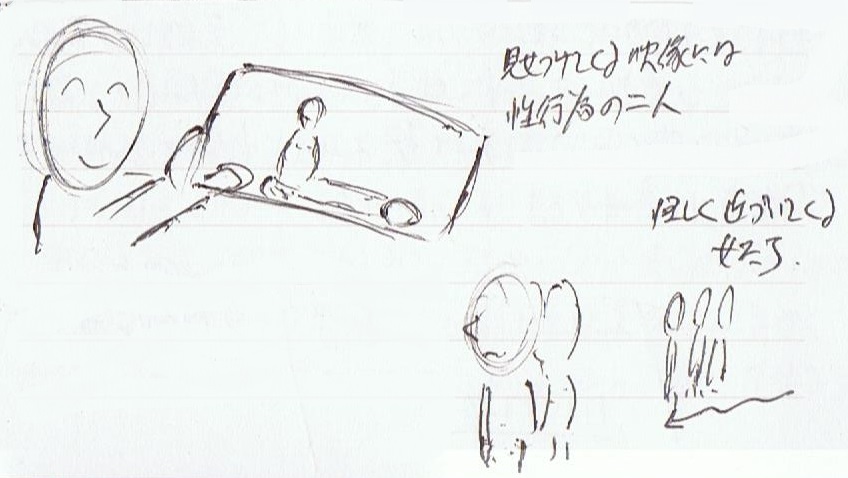 見せつけてくる映像には
性行為の二人
怪しく近づいてくる
女たち.